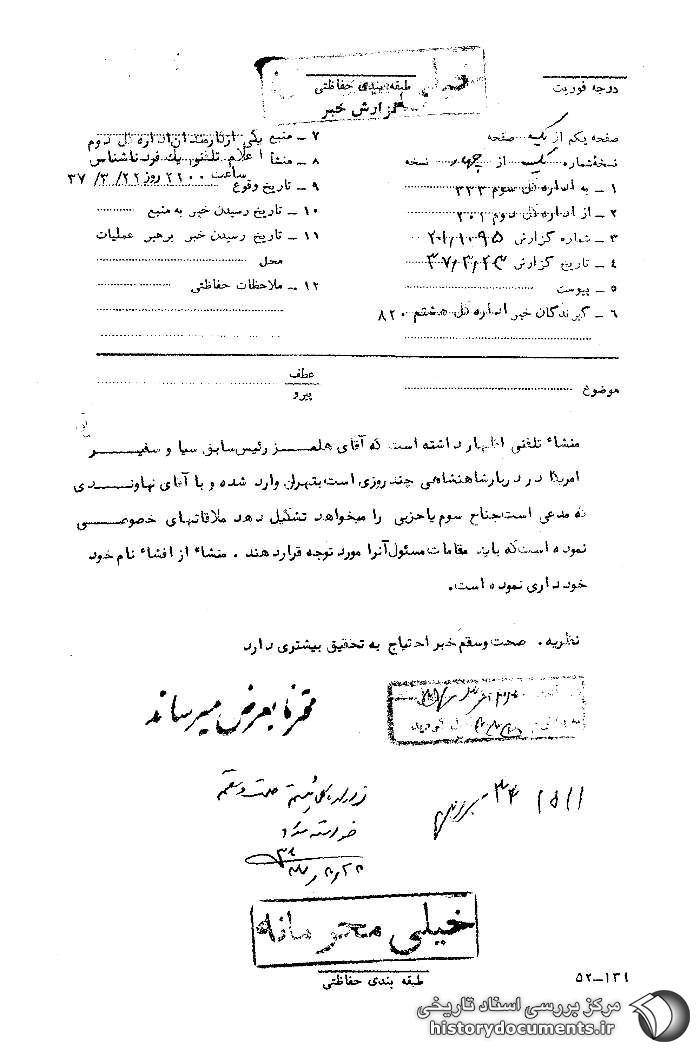 درجه فوریت
طبقه بندی حفاظتی
گزارش خبر
صفحه یکم از یک صفحه
نسخه شماره یک از چهار نسخه
۱ ـ به اداره کل سوم ۳۳۳
۲ ـ از اداره کل دوم ۲۰۱
۳ ـ شماره گزارش ۲۰۱/۱۰۹۵
۴ ـ تاریخ گزارش ۳۷/۳/۲۳
۵ ـ پیوست
۶ ـ گیرندگان خبر اداره کل هشتم ۸۲۰
۷ ـ منبع یکی ازکارمندان اداره کل دوم
۸ ـ منشأ اعلام تلفنی یك فرد ناشناس
۹ ـ تاریخ وقوع ساعت ۲۲۰۰ روز ۳۷/۳/۲۲
۱۰ ـ تاریخ رسیدن خبر به منبع
۱۱ ـ تاریخ رسیدن خبر برهبر عملیات
محل
۱۲ ـ ملاحظات حفاظتی
موضوع
عطف
پیرو
منشاء تلفنی اظهار داشته است که آقای هلمز رئیس سابق سیا و سفیر
امریکا در دربار شاهنشاهی چند روزی است بتهران وارد شده و با آقای نهاوندی
که مدعی است جناح سوم یا حزبی را میخواهد تشکیل دهد ملاقاتهای خصوصی
نموده است که باید مقامات مسئول آنرا مورد توجه قرار دهند . منشاء از افشاء نام خود
خود داری نموده است.
نظریه. صحت و سقم خبر احتیاج به تحقیق بیشتری دارد
محترمانه بعرض میرساند
از اداره کل هشتم صحت و سقم
خواسته شود
خیلی محرمانه
طبقه بندی حفاظتی
۵۲ــ۱۳۱
مرکز بررسی اسناد تاریخی
historydocuments.ir